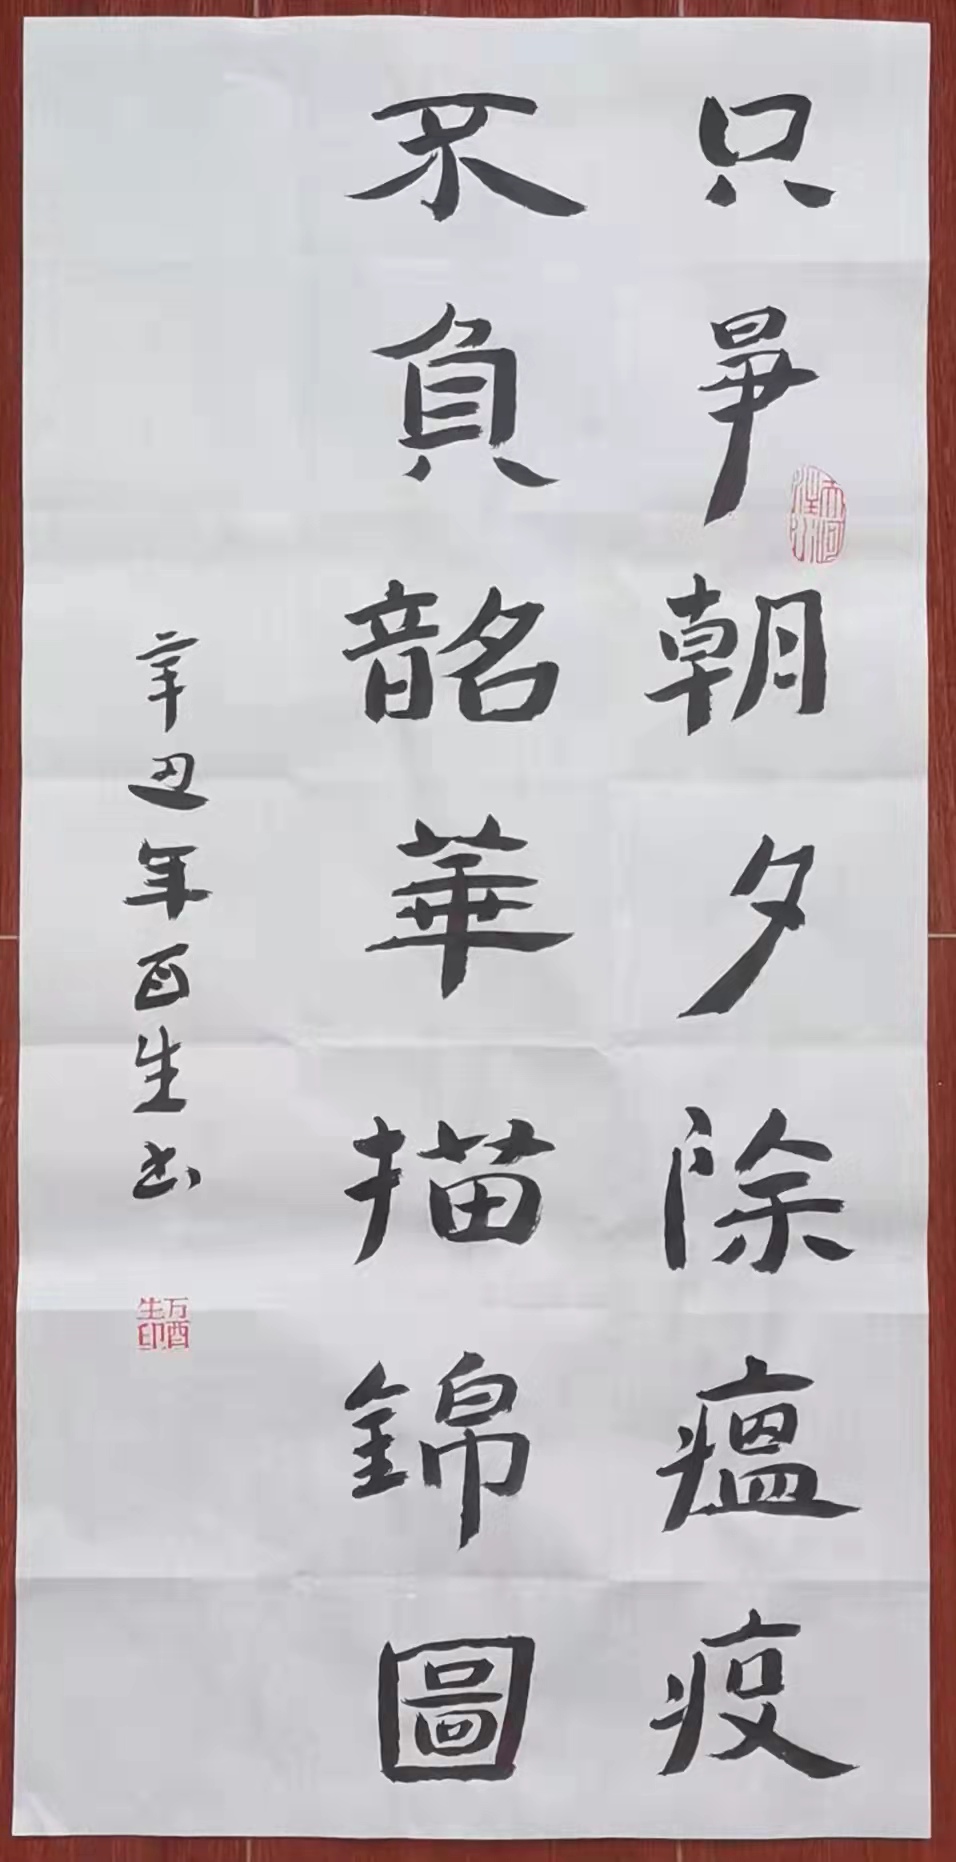 只争朝夕除瘟疫
不負韶華描錦圖
辛丑年酉生书
万酉生印